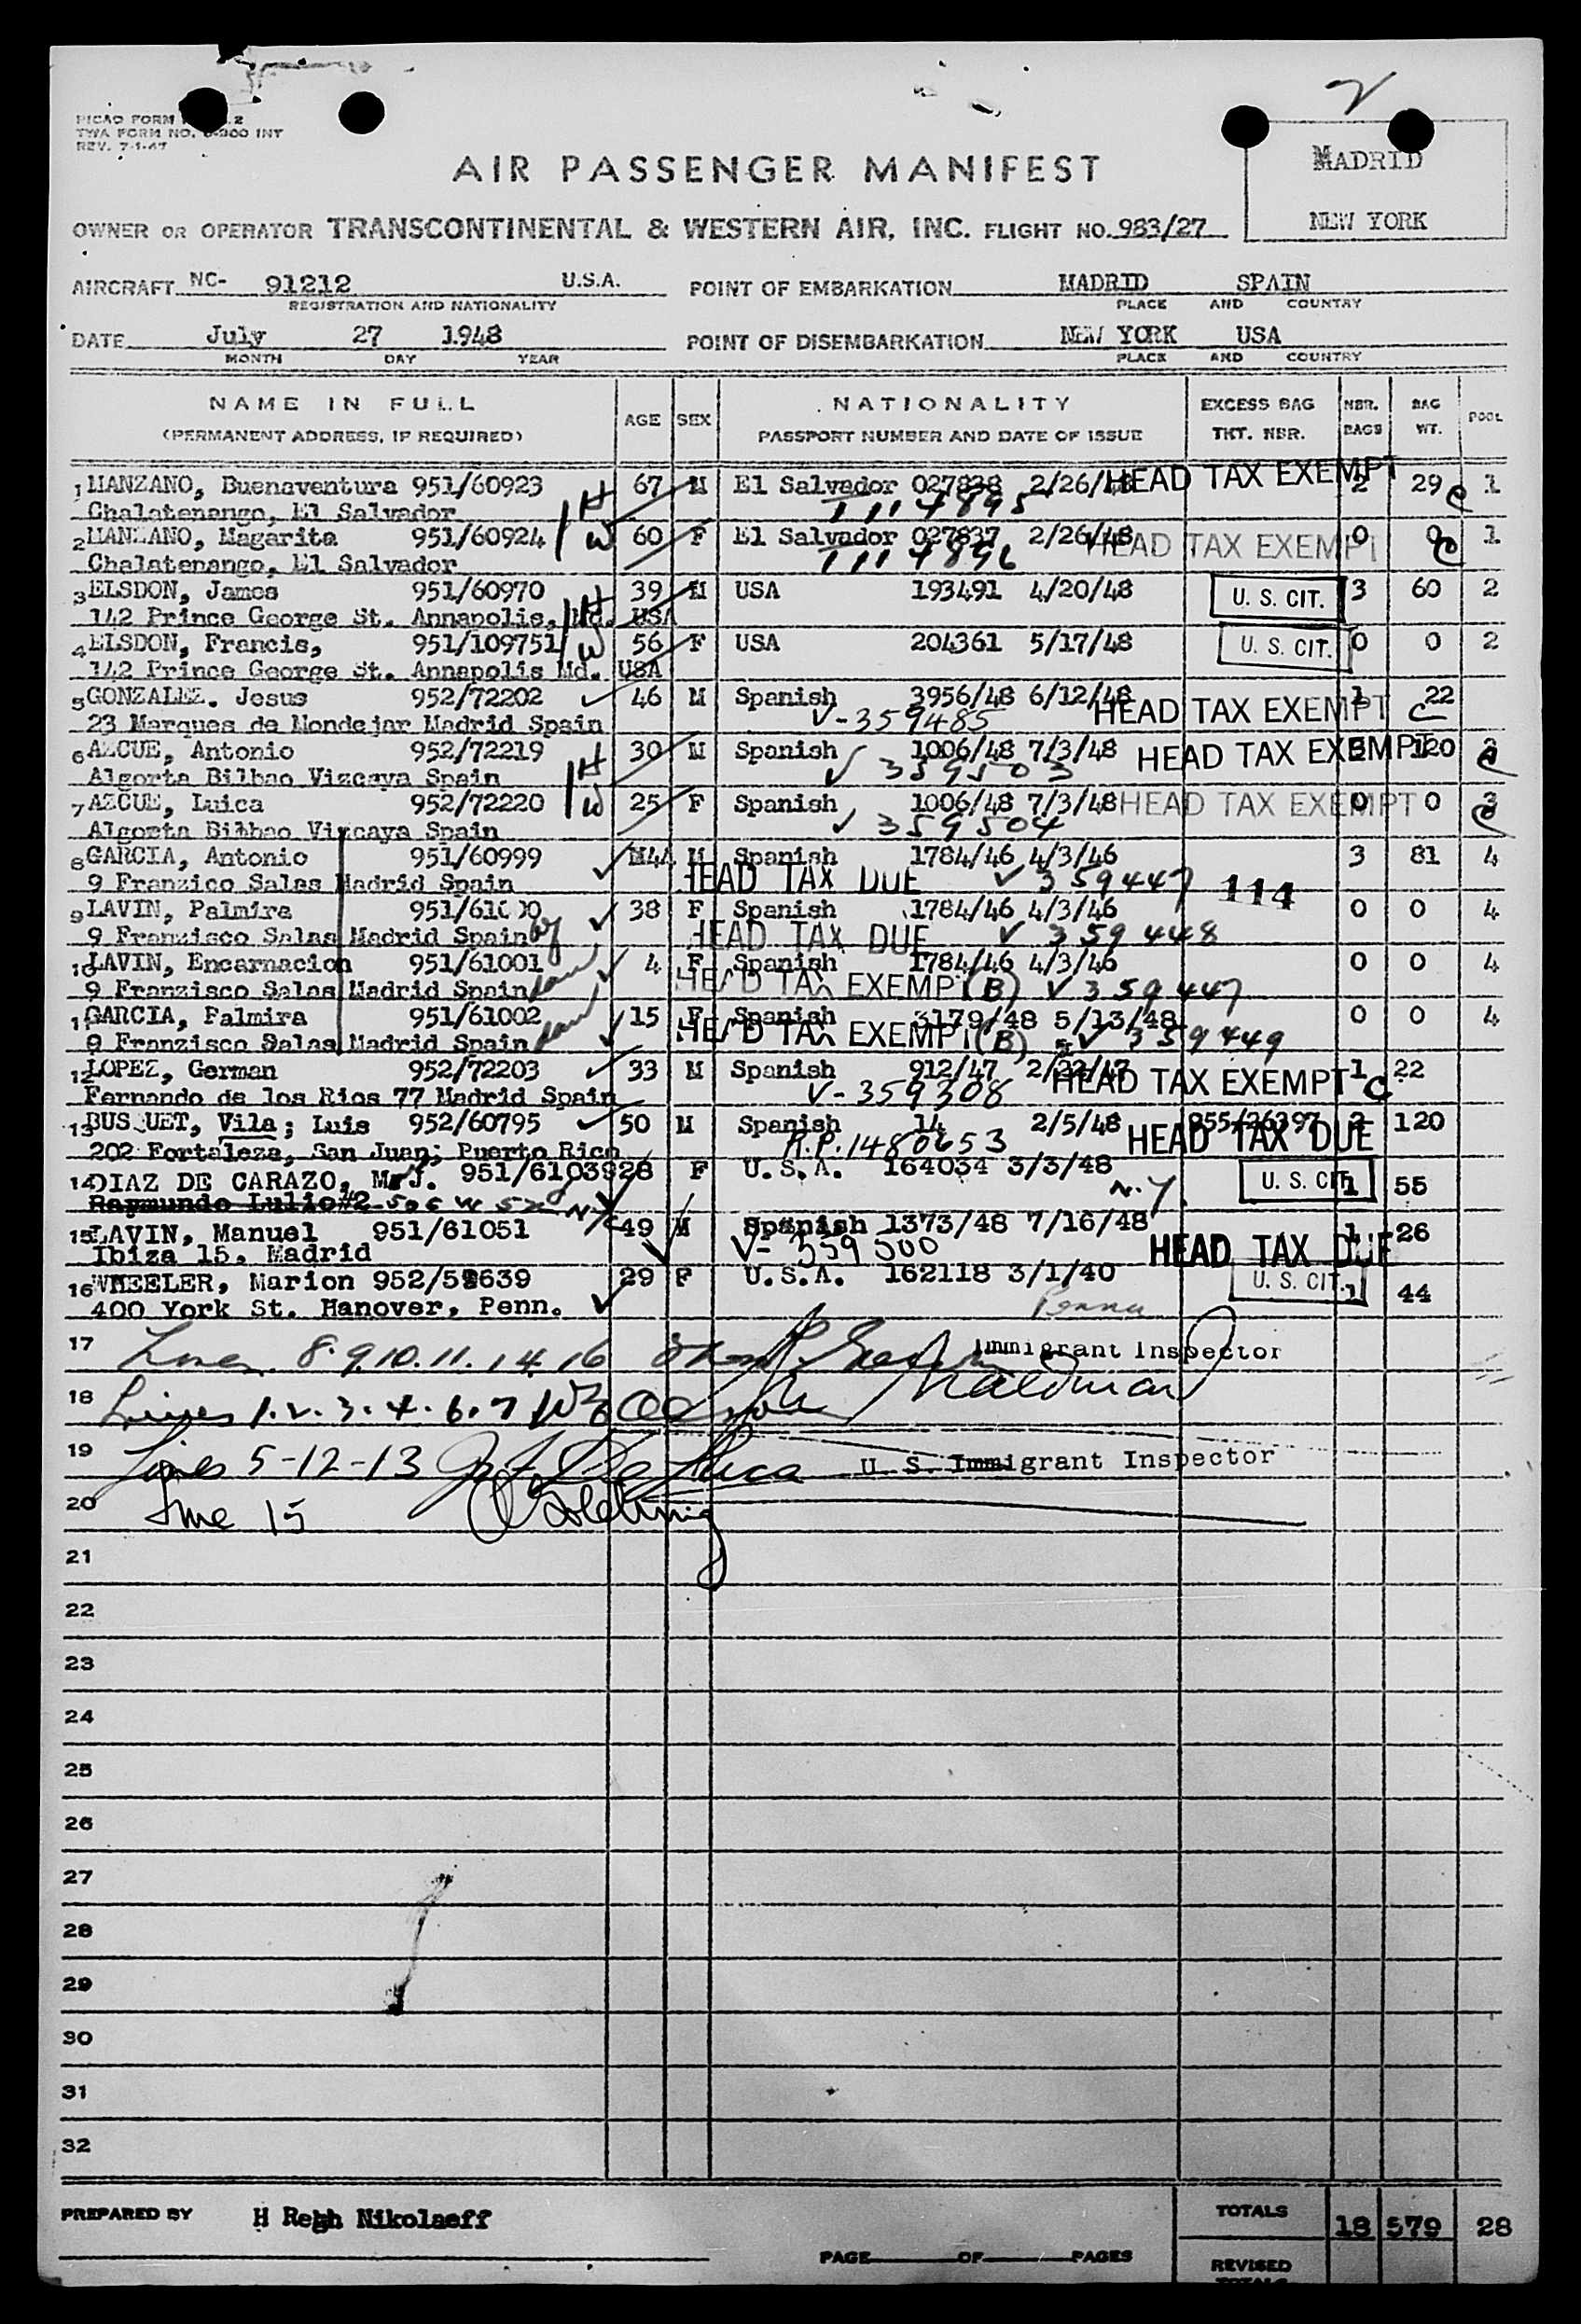 2
PICAO FORM 2
TWA FORM NO. -300 INT
REV. 7-1-47
MADRID
NEW YORK
AIR PASSENGER MANIFEST
OWNER OR OPERATOR TRANSCONTINENTAL & WESTERN AIR, INC. FLIGHT NO. 983/27
AIRCRAFT NC- 91212 U.S.A. POINT OF EMBARKATION MADRID SPAIN
REGISTRATION AND NATIONALITY PLACE AND COUNTRY
DATE July 27 1948 POINT OF DISEMBARKATION NEW YORK USA
MONTH DAY YEAR PLACE AND COUNTRY
NAME IN FULL AGE SEX NATIONALITY EXCESS BAG NBR. BAG POOL
(PERMANENT ADDRESS, IF REQUIRED) PASSPORT NUMBER AND DATE OF ISSUE TKT. NBR. BAGS WT.
1 MANZANO, Buenaventura 951/60923 H 67 M El Salvador 027838 2/26/48 HEAD TAX EXEMPT 2 29 C 1
Chalatenango, El Salvador 1114895
2 MANZANO, Magarita 951/60924 W 60 F El Salvador 027837 2/26/48 HEAD TAX EXEMPT 0 0 C 1
Chalatenango, El Salvador 1114896
3 ELSDON, James 951/60970 H 39 M USA 193491 4/20/48 U. S. CIT. 3 60 2
142 Prince George St. Annapolis, Md. USA
4 ELSDON, Francis, 951/109751 W 56 F USA 204361 5/17/48 U. S. CIT. 0 0 2
142 Prince George St. Annapolis Md. USA
5 GONZALEZ. Jesus 952/72202 46 M Spanish 3956/48 6/12/48 HEAD TAX EXEMPT 1 C 22
23 Marques de Mondejar Madrid Spain V-359485
6 AZCUE, Antonio 952/72219 H 30 M Spanish 1006/48 7/3/48 HEAD TAX EXEMPT 120 3
Algorta Bilbao Vizcaya Spain 359503
7 AZCUE, Luica 952/72220 W 25 F Spanish 1006/48 7/3/48 HEAD TAX EXEMPT 0 0 3
Algorta Bilbao Vizcaya Spain 359504
8 GARCIA, Antonio 951/60999 M44 M Spanish 1784/46 4/3/46 3 81 4
9 Franzico Salas Madrid Spain HEAD TAX DUE 359447 114
9 LAVIN, Palmira 951/61000 38 F Spanish 1784/46 4/3/46 0 0 4
9 Franzisco Salas Madrid Spain HEAD TAX DUE 359448
10 LAVIN, Encarnacion 951/61001 4 F Spanish 1784/46 4/3/46 0 0 4
9 Franzisco Salas Madrid Spain HEAD TAX EXEMPT (B) 359447
11 GARCIA, Palmira 951/61002 15 F Spanish 3179/48 5/13/48 0 0 4
9 Franzisco Salas Madrid Spain HEAD TAX EXEMPT (B) 359449
12 LOPEZ, German 952/72203 33 M Spanish 912/47 2/22/47 HEAD TAX EXEMPT 1 C 22
Fernando de los Rios 77 Madrid Spain V-359308
13 BUSQUET, Vila; Luis 952/60795 50 M Spanish 14 2/5/48 855/26397 2 120
202 Fortaleza, San Juan; Puerto Rico R.P.1480653 HEAD TAX DUE
14 DIAZ DE CARAZO, M J. 951/61039 28 F U.S.A. 164034 3/3/48 N.Y. U. S. CIT. 1 55
Raymundo Lulio#2
15 LAVIN, Manuel 951/61051 49 M Spanish 1373/48 7/16/48 1 26
Ibiza 15. Madrid V-359500 HEAD TAX DUE
16 WHEELER, Marion 952/58639 29 F U.S.A. 162118 3/1/40 U. S. CIT. 1 44
400 York St. Hanover, Penn. Penna
17 Lines 8.9.10.11.14.16 Immigrant Inspector
18 Lines 1.2.3.4.6.7
19 Lines 5-12-13 U. S. Immigrant Inspector
20 Line 15
21
22
23
24
25
26
27
28
29
30
31
32
PREPARED BY H Regh Nikolaeff TOTALS 18 579 28
PAGE OF PAGES REVISED
TOTALS